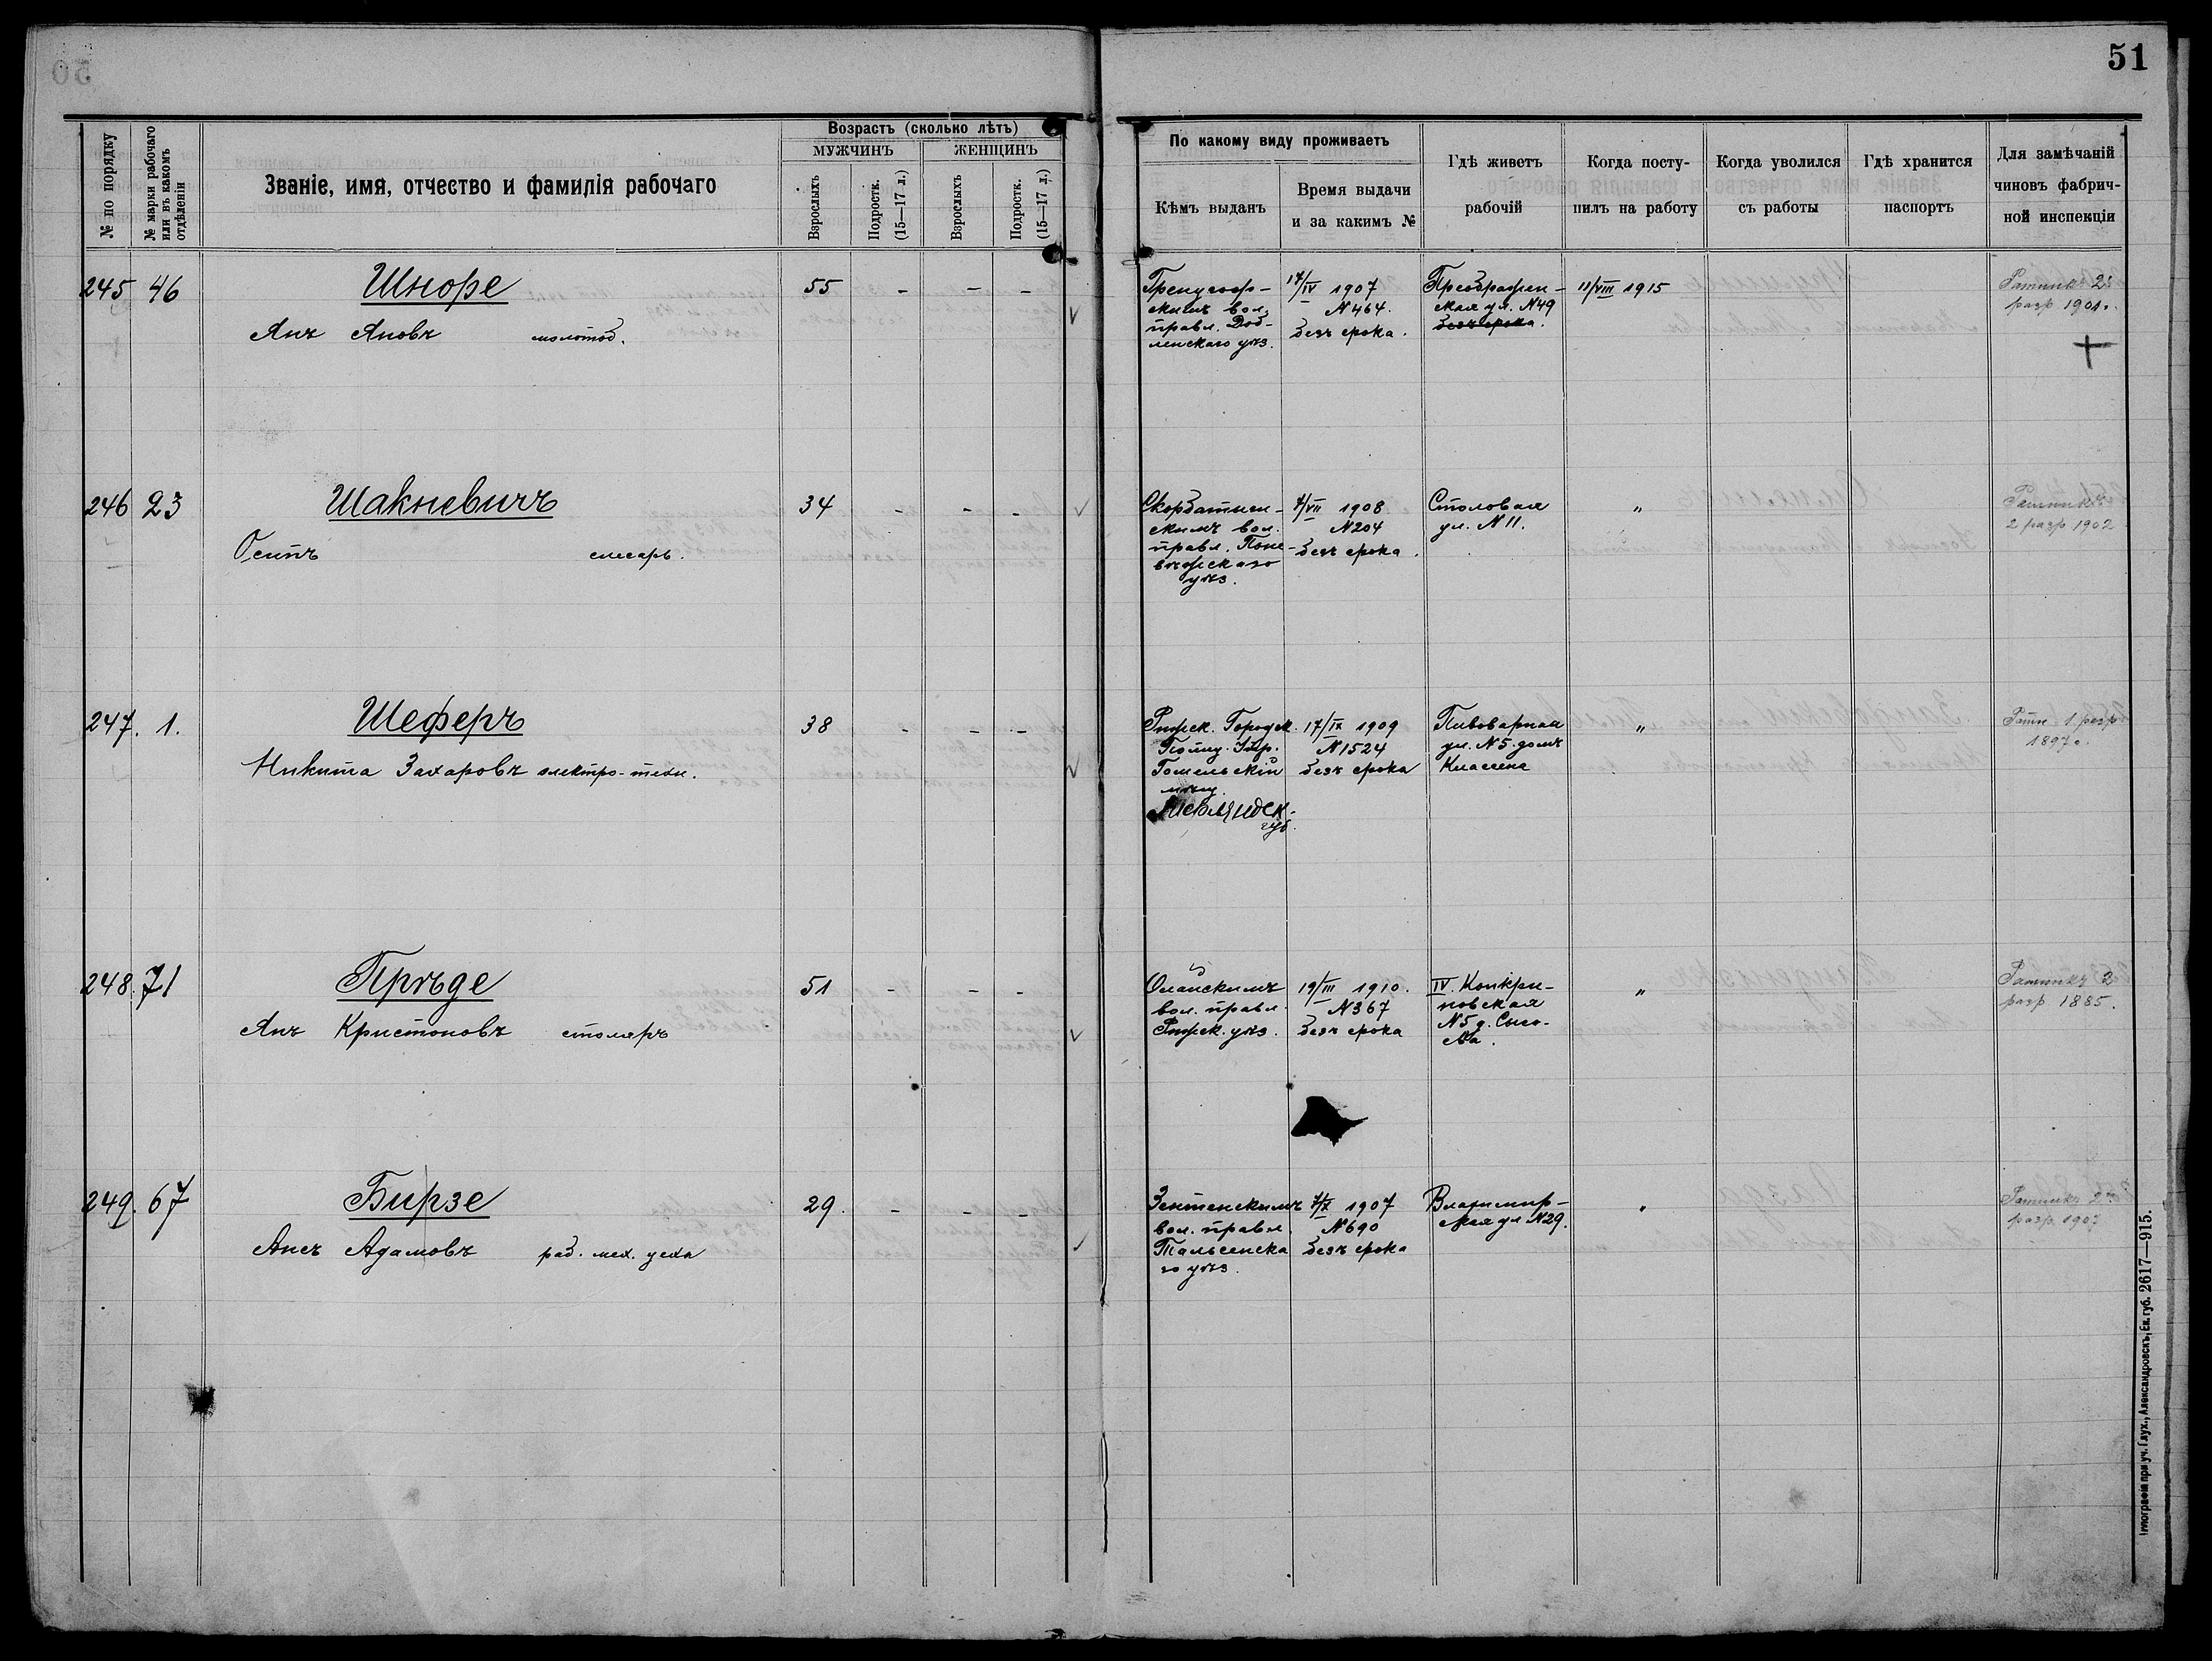 51
№ по порядку
№ марки рабочаго
или въ какомъ
отдѣленіи
Званіе, имя, отчество и фамилія рабочаго
Возрастъ (сколько лѣтъ)
МУЖЧИНЪ
ЖЕНЩИНЪ
Взрослыхъ
Подростк.
(15—17 л.)
Взрослыхъ
Подростк.
(15—17 л.)
По какому виду проживаетъ
Кѣмъ выданъ
Время выдачи
и за какимъ №
Гдѣ живетъ
рабочій
Когда посту-
пилъ на работу
Когда уволился
съ работы
Гдѣ хранится
паспортъ
Для замѣчаній
чиновъ фабрич-
ной инспекціи
245 46
Шноре
Янъ Яновъ молотоб.
55 - - -
скимъ вол.
правл. Доб-
ленскаго уѣз.
17/IV 1907
№464.
безъ срока.
Преображен-
ская ул. №49
безъ срока.
11/VIII 1915
Ратникъ 2
разр 1901.
246 23
Шакневичъ
Осипъ слесарь.
34 - - -
скимъ вол.
правл. Поне-
вѣжскаго
уѣз.
7/VII 1908
№204
безъ срока.
Столовая
ул. №11.
"
Ратникъ
2 разр 1902
247. 1.
Шеферъ
Никита Захаровъ электро-техн.
38 - - -
Рижск. Городск.
Полиц. Упр.
Гомельскій
мѣщ.
Лифляндск.
губ.
17/IX 1909
№1524
безъ срока
Пивоварная
ул. №5. домъ
Классена
"
Ратн. 1. разр
1897.
248. 71
Пріъде
Янъ Кристоповъ столяръ
51 - - -
Олайскимъ
вол. правл.
Рижск. уѣз.
19/III 1910.
№367
безъ срока
IV. Конкри-
новская
№5 д. Сысо-
"
Ратникъ 2
разр 1885.
249. 67
Бирзе
Ансъ Адамовъ раб. мех. цеха
29. - - -
Зентенскимъ
вол. правл.
Тальсенска
го уѣз.
7/X 1907
№690
безъ срока
Владимир-
ская ул №29.
"
Ратникъ 2
разр 1907
Типографія при уч. Глух., Александровскъ, Ек. губ. 2617—915.